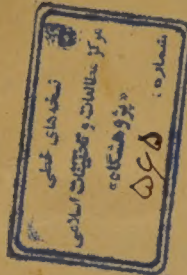 نسخه‌های خطی
مرکز مطالعات و تحقیقات اسلامی
«پژوهشگاه»
شماره: ۵۶۵